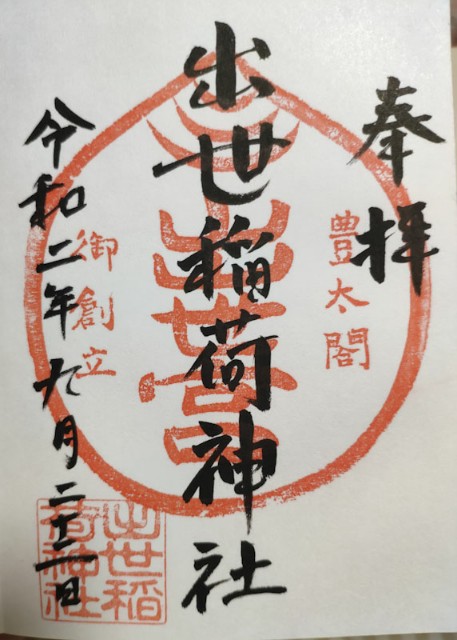 奉拝
豊太閤
出世
出世稲荷神社
御創立
令和二年九月二十二日
出世稲
荷神社